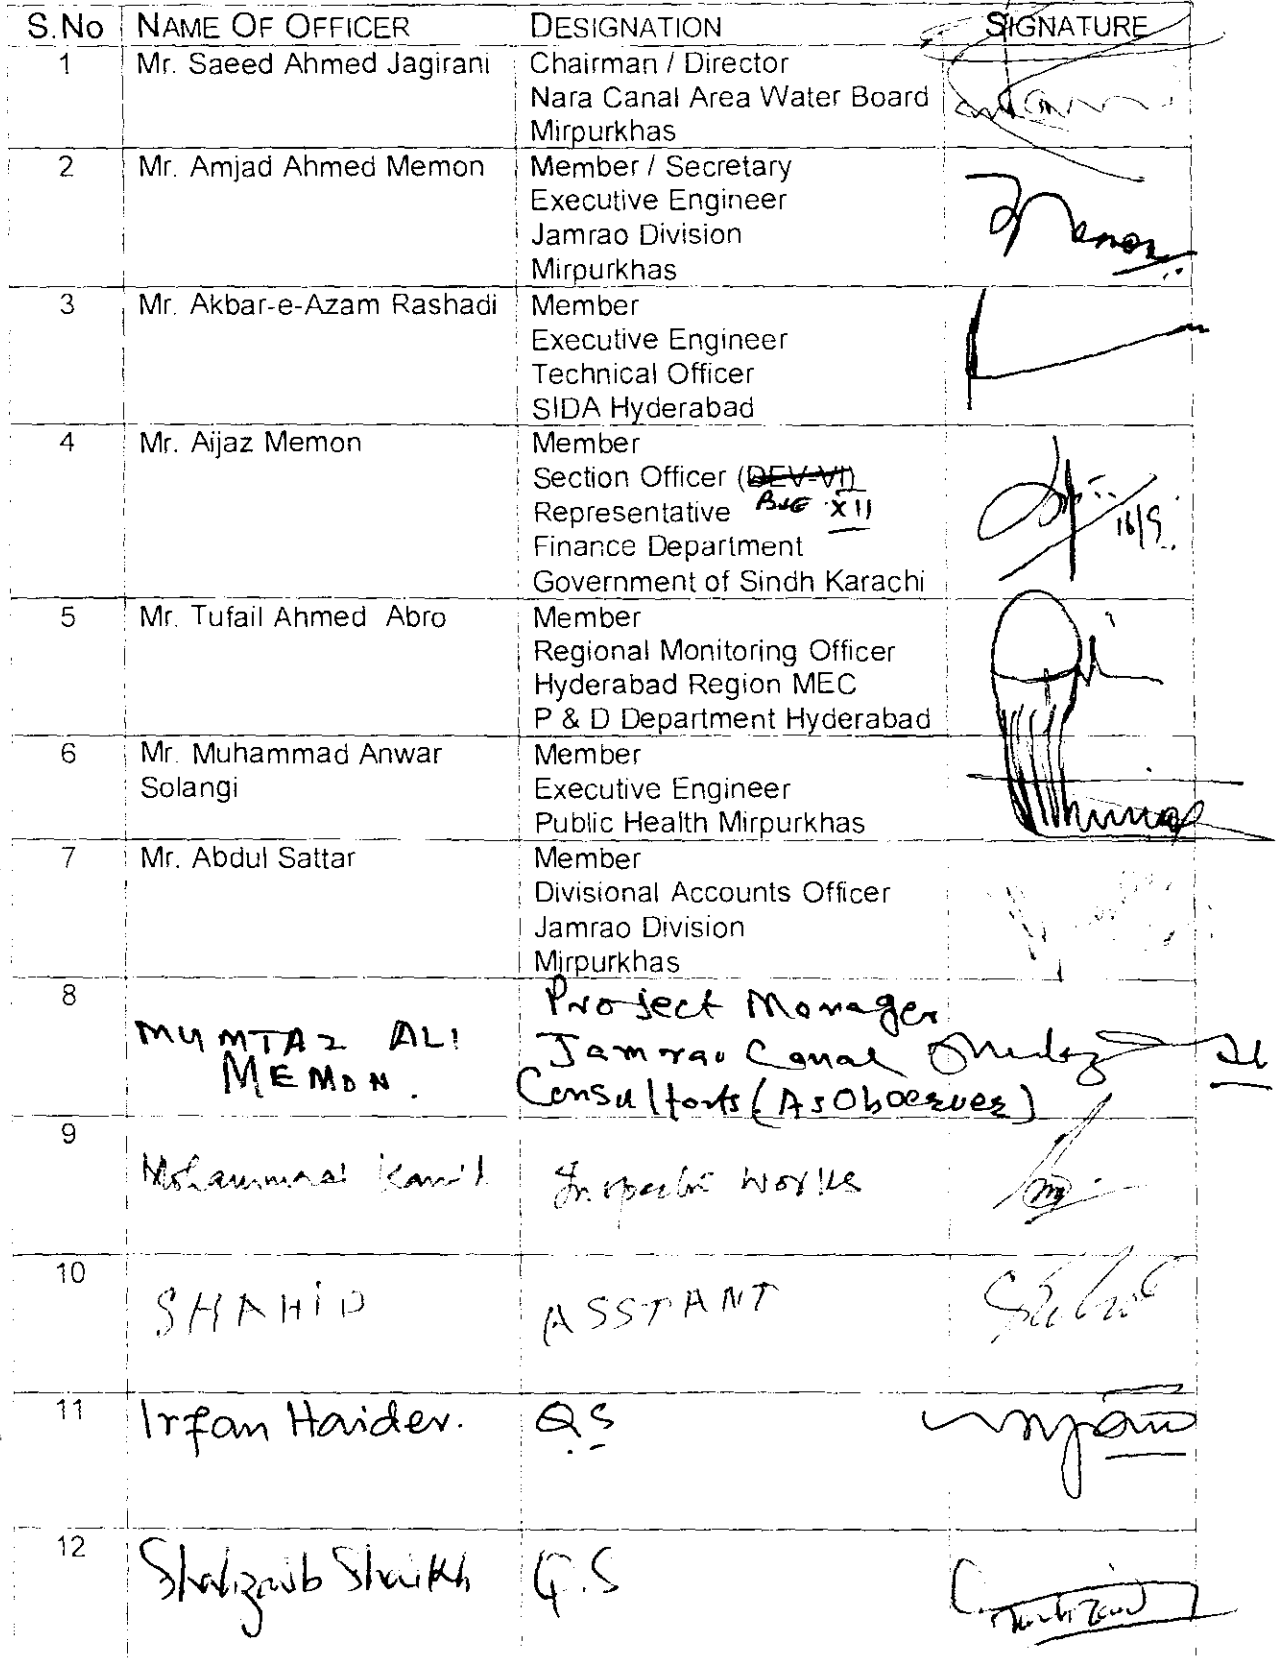 S.No NAME OF OFFICER DESIGNATION SIGNATURE
1 Mr. Saeed Ahmed Jagirani Chairman / Director
Nara Canal Area Water Board
Mirpurkhas
2 Mr. Amjad Ahmed Memon Member / Secretary
Executive Engineer
Jamrao Division
Mirpurkhas
3 Mr. Akbar-e-Azam Rashadi Member
Executive Engineer
Technical Officer
SIDA Hyderabad
4 Mr. Aijaz Memon Member
Section Officer (DEV-VI)
Representative XII
Finance Department
Government of Sindh Karachi
16/9
5 Mr. Tufail Ahmed Abro Member
Regional Monitoring Officer
Hyderabad Region MEC
P & D Department Hyderabad
6 Mr. Muhammad Anwar Member
Solangi Executive Engineer
Public Health Mirpurkhas
7 Mr. Abdul Sattar Member
Divisional Accounts Officer
Jamrao Division
Mirpurkhas
8 Project Manager
MUMTAZ ALI Jamrao Canal
MEMON. Consultants (As Observer)
9
Mohammad Kamil Inspector Works
10
SHAHID ASSTANT
11 Irfan Haider. QS
12
Shahzaib Shaikh Q.S